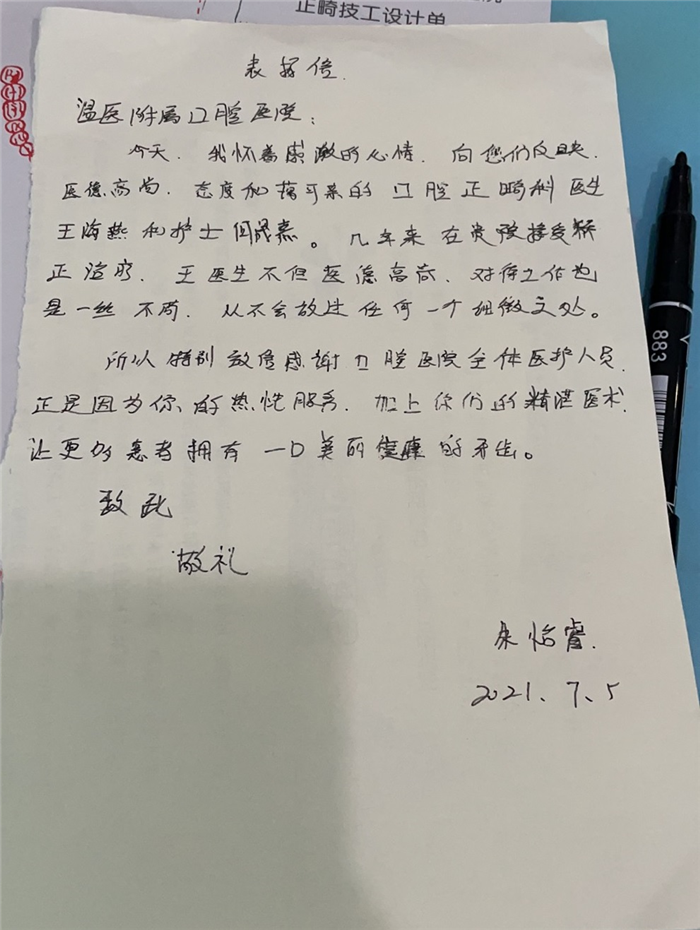 正畸技工设计单
表扬信.
温医附属口腔医院:
今天.我怀着感激的心情.向您们反映.
医德高尚.态度和蔼可亲的口腔正畸科医生
王海燕和护士何晨熹。几年来在贵院接受矫
正治疗.王医生不但医德高尚.对待工作也
是一丝不苟.从不会放过任何一个细微之处。
所以特别致信感谢口腔医院全体医护人员.
正是因为你们的热忱服务.加上你们的精湛医术.
让更多患者拥有一口美丽健康的牙齿。
致此
敬礼
朱怡睿.
2021、7、5
883